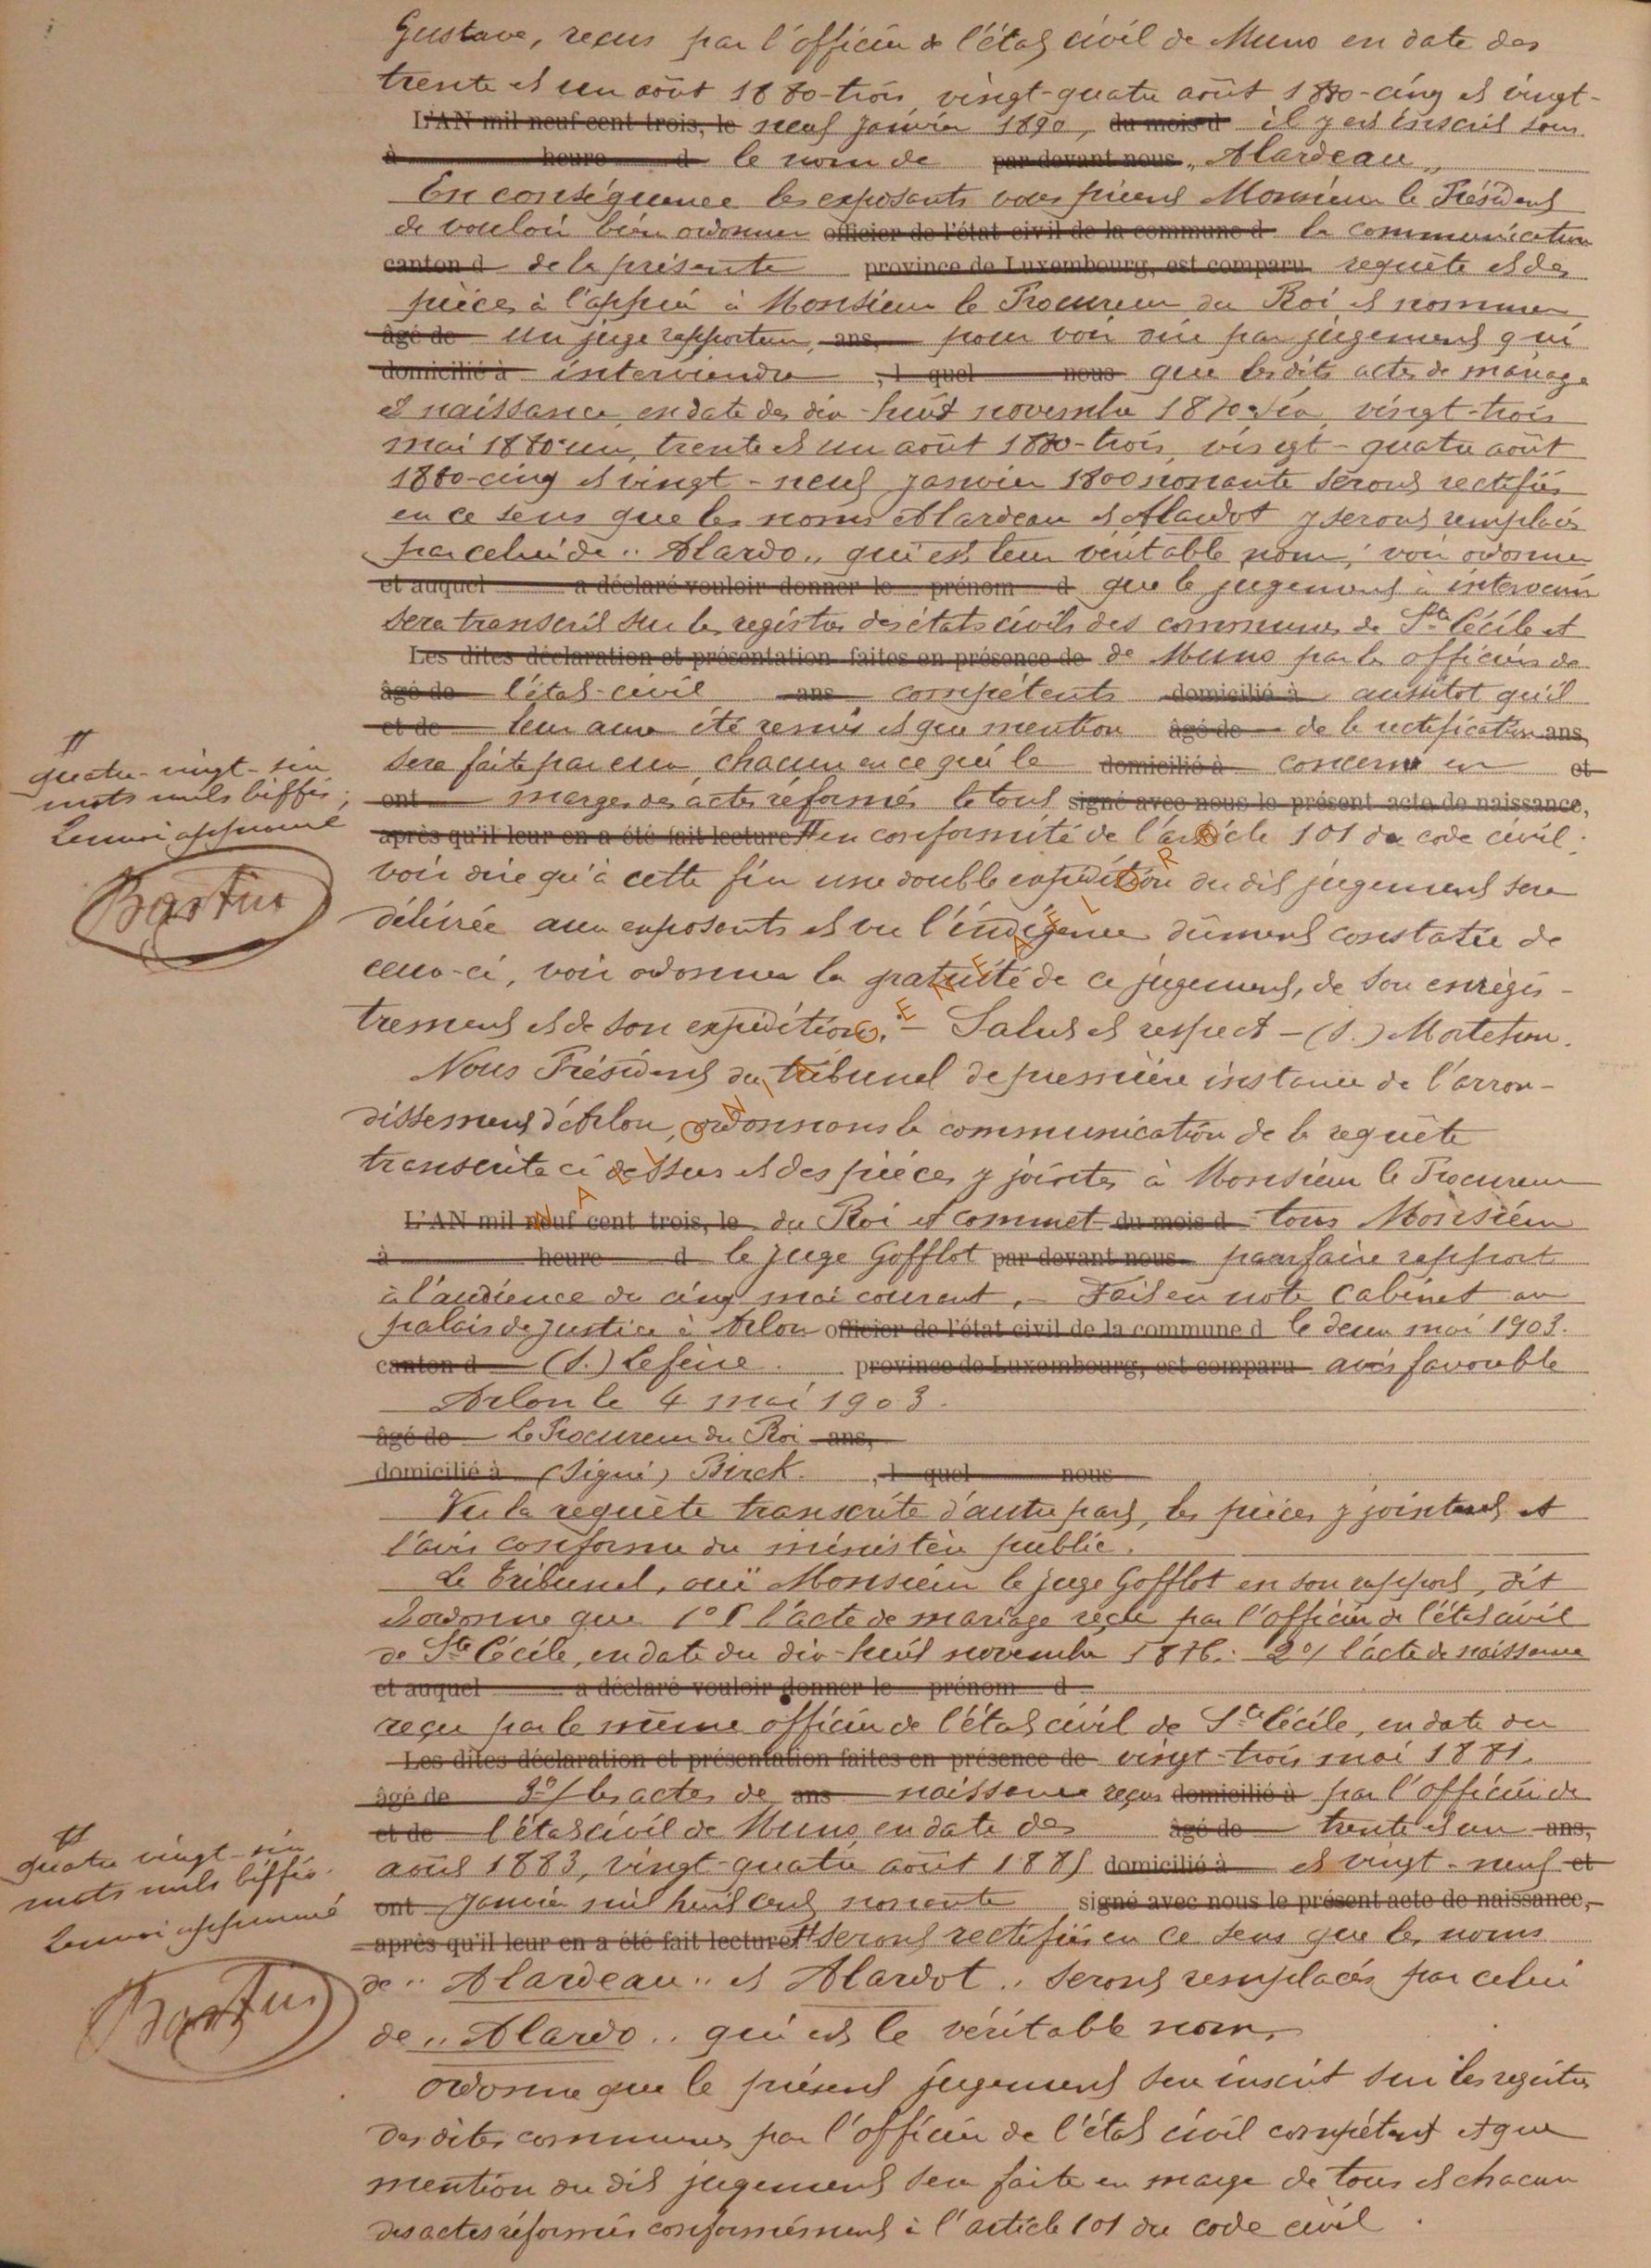 Gustave, reçus par l'officier de l'état civil de Muno en date des
trente et un août 1880-trois, vingt-quatre août 1880-cinq et vingt-
L'AN mil neuf cent trois, le neuf janvier 1890, du mois d il y est inscrit sous
à heure d le nom de par devant nous „ Alardeau „
En conséquence les exposants vous prient Monsieur le Président
de vouloir bien ordonner officier de l'état civil de la commune d la communication
canton d de la présente province de Luxembourg, est comparu requête et des
pièces à l'appui à Monsieur le Procureur du Roi et nommer
âgé de un juge rapporteur, ans, pour voir dire par jugement qui
domicilié à interviendra , l quel nous que lesdits actes de mariage
et naissance, en date des dix-huit novembre 1870-six, vingt-trois
mai 1880-un, trente et un août 1880-trois, vingt-quatre août
1880-cinq et vingt-neuf janvier 1800 nonante seront rectifiés
en ce sens que les noms Alardeau et Alardot y seront remplacés
par celui de „ Alardo „ qui est leur véritable nom; voir ordonner
et auquel a déclaré vouloir donner le prénom d que le jugement à intervenir
sera transcrit sur les registres des états civils des communes de Ste Cécile et
Les dites déclaration et présentation faites en présence de de Muno par les officiers de
âgé de l'état-civil ans compétents domicilié à aussitôt qu'il
et de leur aura été remis et que mention âgé de de la rectification ans,
sera faite par eux, chacun en ce qui le domicilié à concerne en et
ont marge des actes réformés le tout signé avec nous le présent acte de naissance,
après qu'il leur en a été fait lecture # en conformité de l'article 101 du code civil;
voir dire qu'à cette fin une double expédition du dit jugement sera
délivrée aux exposants et vu l'indigence dûment constatée de
ceux-ci, voir ordonner la gratuité de ce jugement, de son enregis-
trement et de son expédition. - Salut et respect - (s.)
Nous Président du tribunal de première instance de l'arron-
dissement d'Arlon, ordonnons la communication de la requête
transcrite ci dessus et des pièces y jointes à Monsieur le Procureur
L'AN mil neuf cent trois, le du Roi et commet du mois d tous Monsieur
à heure d le juge Gofflot par devant nous pour faire rapport
à l'audience du cinq mai courant. - Fait en notre cabinet au
palais de justice à Arlon officier de l'état civil de la commune d le deux mai 1903.
canton d (s.) province de Luxembourg, est comparu avis favorable
Arlon le 4 mai 1903.
âgé de Le Procureur du Roi ans,
domicilié à (Signé) Birck. , l quel nous
Vu la requête transcrite d'autre part, les pièces y jointes et
l'avis conforme du ministère public.
Le Tribunal, ouï Monsieur le juge Gofflot en son rapport, dit
et ordonne que 1°/ l'acte de mariage reçu par l'officier de l'état civil
de Ste Cécile, en date du dix-huit novembre 1876. 2°/ l'acte de naissance
et auquel a déclaré vouloir donner le prénom d
reçu par le même officier de l'état civil de Ste Cécile, en date du
Les dites déclaration et présentation faites en présence de vingt-trois mai 1881.
âgé de 3°/ les actes de ans naissance reçus domicilié à par l'officier de
et de l'état civil de Muno en date des âgé de trente et un ans,
août 1883, vingt-quatre août 1885 domicilié à et vingt-neuf et
ont janvier mil huit cent nonante signé avec nous le présent acte de naissance,
après qu'il leur en a été fait lecture # seront rectifiés en ce sens que les noms
de „ Alardeau „ et Alardot „ seront remplacés par celui
de „ Alardo „ qui est le véritable nom.
Ordonne que le présent jugement sera inscrit sur les registres
des dites communes par l'officier de l'état civil compétent et que
mention du dit jugement sera faite en marge de tous et chacun
des actes réformés conformément à l'article 101 du code civil.
#
quatre-vingt-six
mots nuls biffés;
Renvoi approuvé
#
quatre vingt-six
mots nuls biffés.
Renvoi approuvé